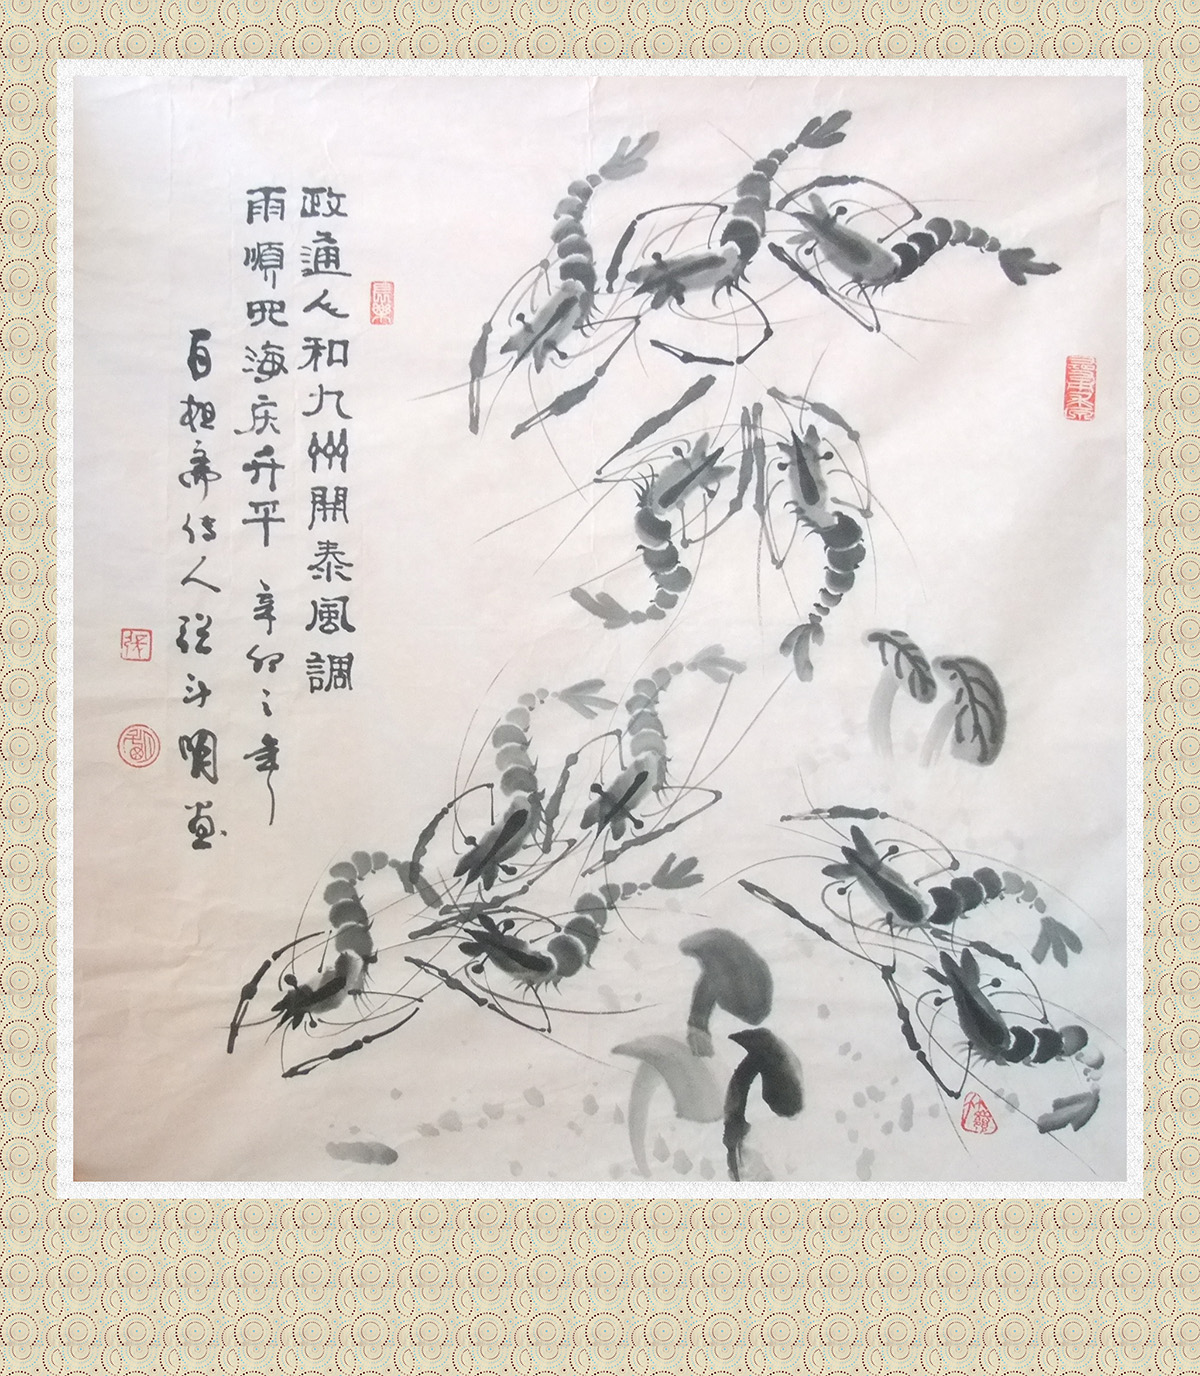 政通人和九州開泰風調
雨順四海庆升平 辛卯之年
百粗斋传人張斗明画
張